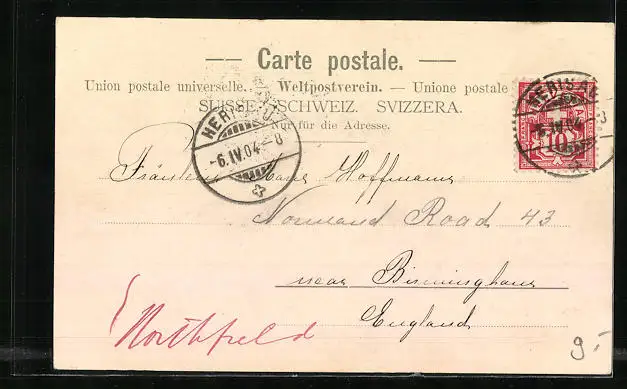 — Carte postale. —
Union postale universelle. — Weltpostverein. — Unione postale
SUISSE. SCHWEIZ. SVIZZERA.
Nur für die Adresse.
HERISAU
-6.IV.04-8
HERISAU
-6.IV.04
10
Fräulein Hoffmann
Road 43
near Birmingham
England
Northfield
9.-